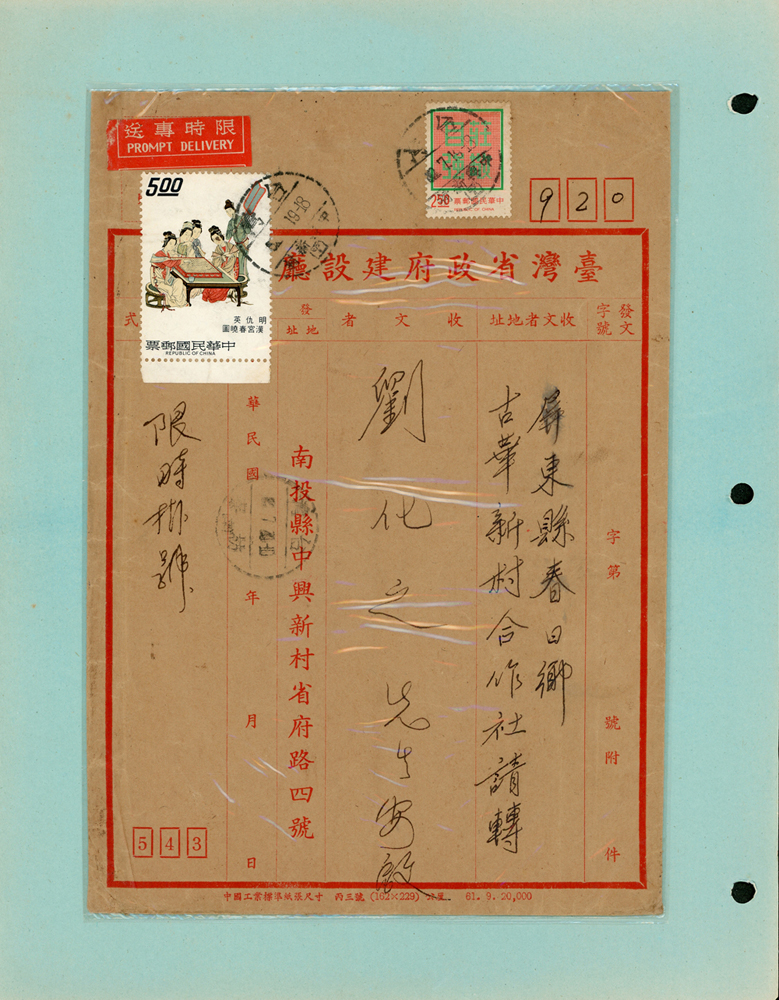 限時專送
PROMPT DELIVERY
莊敬自強
2.50
中華民國郵票
REPUBLIC OF CHINA
920
5.00
明 仇英
漢宮春曉圖
中華民國郵票
REPUBLIC OF CHINA
臺灣省政府建設廳
發文字號
收文者地址
收文者
發
地址
式
字第
號附
件
屏東縣春日鄉
古華新村合作社請轉
劉化之先生安啟
南投縣中興新村省府路四號
華民國
年
月
日
限時掛號
543
中國工業標準紙張尺寸 丙三號 (162×229) 61. 9. 20,000